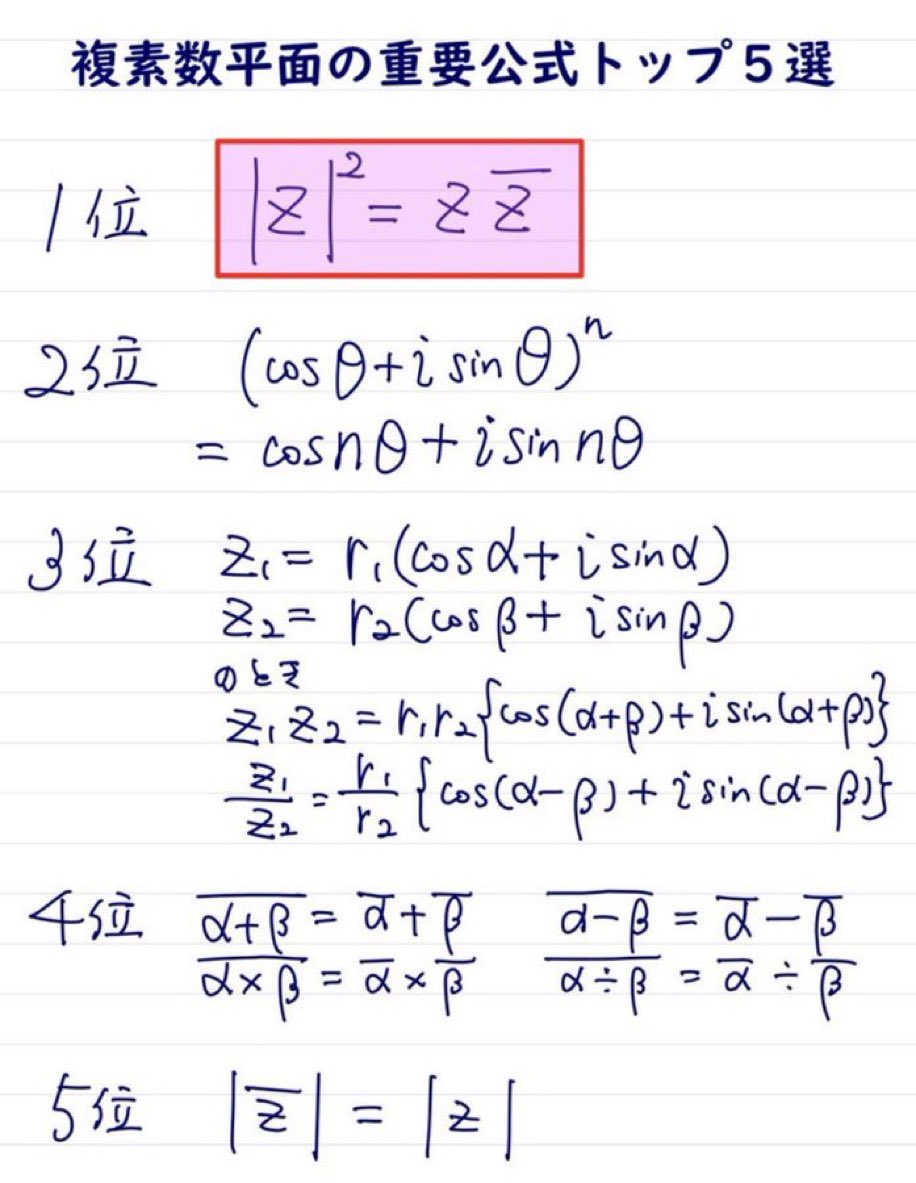 複素数平面の重要公式トップ5選
1位 |z|² = z z̅
2位 (cosθ+i sinθ)ⁿ
= cos nθ + i sin nθ
3位 z₁ = r₁(cosα + i sinα)
z₂ = r₂(cosβ + i sinβ)
のとき
z₁z₂ = r₁r₂{cos(α+β)+i sin(α+β)}
z₁/z₂ = r₁/r₂ {cos(α-β)+ i sin(α-β)}
4位 \overline{α+β} = \overline{α}+\overline{β} \overline{α-β} = \overline{α}-\overline{β}
\overline{α×β} = \overline{α}×\overline{β} \overline{α÷β} = \overline{α}÷\overline{β}
5位 |z̅| = |z|